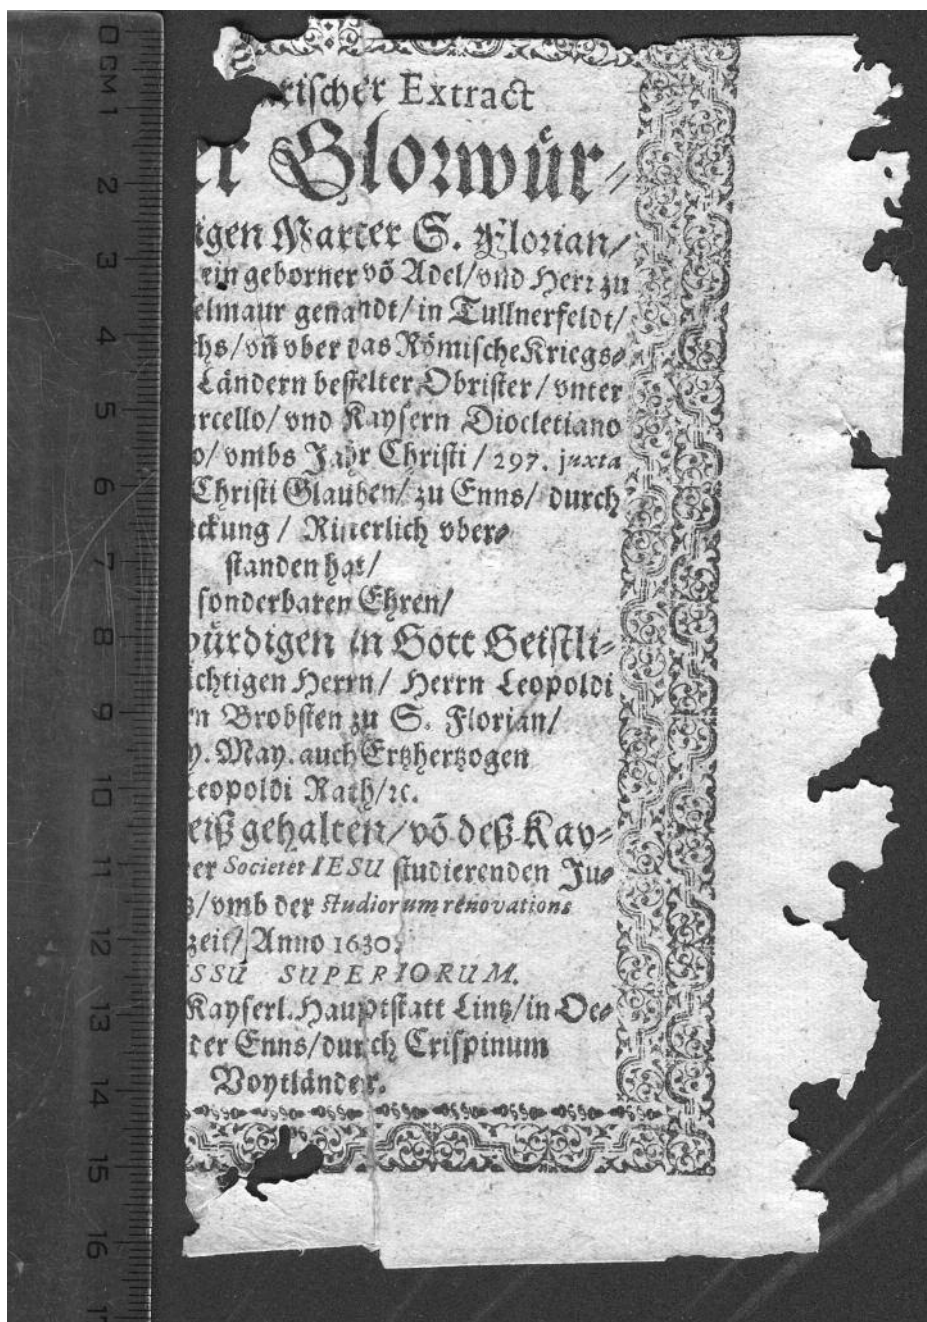 rischer Extract
er Glorwür⸗
igen Marter S. Florian/
ein geborner võ Adel/vnd Herr zu
elmaur genandt/in Tullnerfeldt/
chs/vñ vber das Römische Kriegs⸗
Ländern bestelter Obrister/vnter
rcello/vnd Kaysern Diocletiano
o/vmbs Jahr Christi/297. juxta
Christi Glauben/zu Enns/durch
ckung/Ritterlich vber⸗
standen hat/
sonderbaren Ehren/
würdigen in Gott Geistli⸗
ächtigen Herrn/Herrn Leopoldi
n Brobsten zu S. Florian/
y. May. auch Ertzhertzogen
Leopoldi Rath/ꝛc.
eiß gehalten/võ deß Kay⸗
er Societet IESU studierenden Ju⸗
tz/vmb der studiorum renovations
zeit/Anno 1630.
SSU SUPERIORUM.
Kayserl. Hauptstatt Lintz/in Oe⸗
der Enns/durch Crispinum
Voytländer.